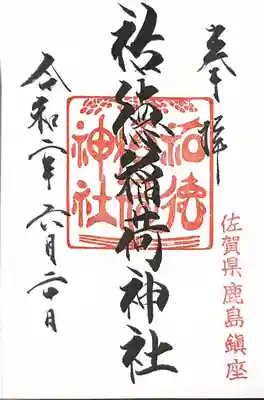 奉拝
佐賀県鹿島鎮座
祐徳稲荷神社
祐徳
稲荷
神社
令和二年六月二十日